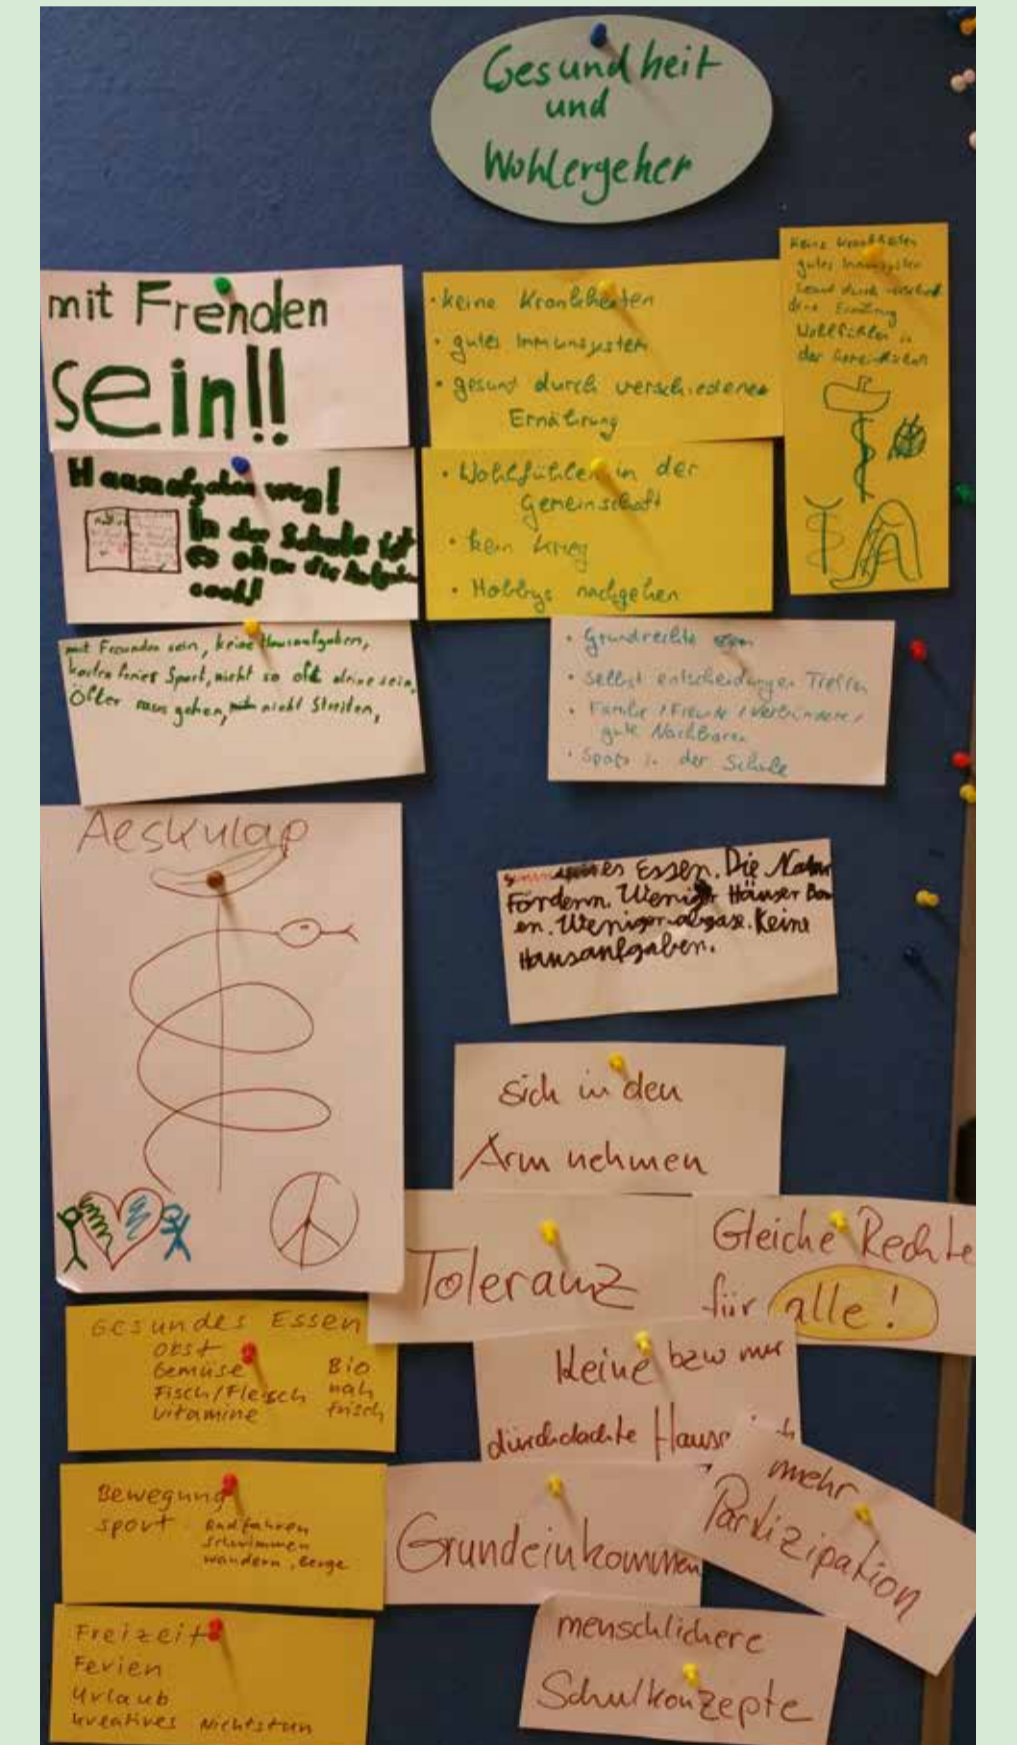 Gesundheit
und
Wohlergehen
mit Frenden
sein!!
Hausaufgaben weg!
In der Schule ist
es ohne die Aufgaben
cool!
mit Freunden sein, keine Hausaufgaben,
kostenfreier Sport, nicht so oft alleine sein,
Öfter raus gehen, nicht Streiten,
• keine Krankheiten
• gutes Immunsystem
• gesund durch verschiedene
Ernährung
• Wohlfühlen in der
Gemeinschaft
• kein Krieg
• Hobbys nachgehen
keine Krankheiten
gutes Immunsystem
Gesund durch verschied
dene Ernährung
Wohlfühlen in
der Gemeinschaft
• Grundrechte
• selbst entscheidungen Treffen
• Familie / Freunde / Verbündete /
gute Nachbaren
• Spaß in der Schule
Aeskulap
es Essen. Die Natur
Fördern. Weniger Häuser Bau
en. Weniger abgase. Keine
Hausaufgaben.
sich in den
Arm nehmen
Toleranz
Gleiche Rechte
für alle!
Gesundes Essen
Obst
Gemüse Bio
Fisch/Fleisch nah
Vitamine frisch
Keine bzw nur
durchdachte Haus
mehr
Partizipation
Bewegung
Sport Radfahren
Schwimmen
Wandern, Berge
Grundeinkommen
Freizeit
Ferien
Urlaub
kreatives Nichtstun
menschlichere
Schulkonzepte